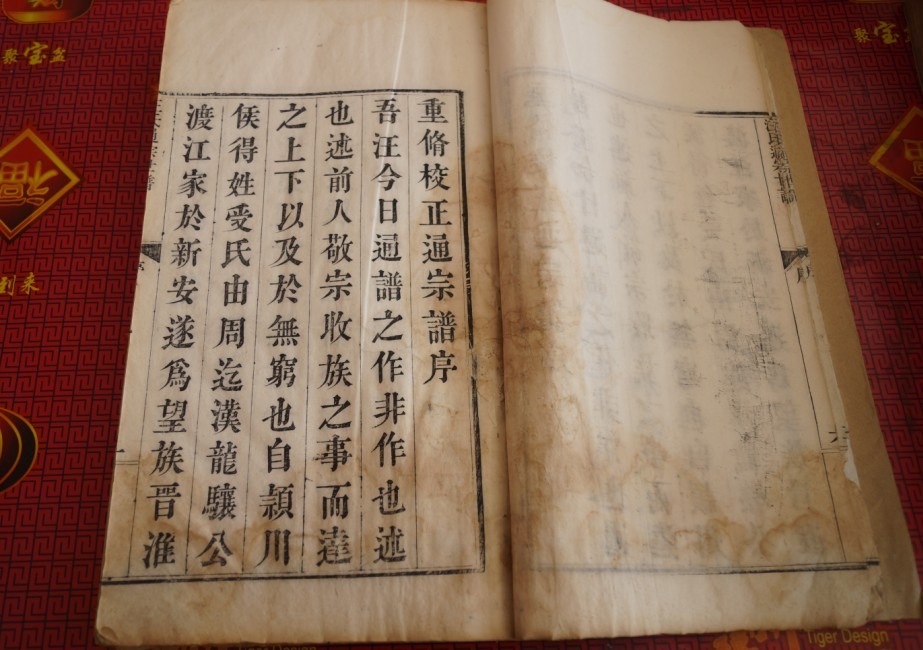 重脩校正通宗譜序
吾汪今日通譜之作非作也述
也述前人敬宗收族之事而達
之上下以及於無窮也自潁川
侯得姓受氏由周迄漢龍驤公
渡江家於新安遂爲望族晉淮
序
六
聚宝盆
聚宝
福
利来
Tiger Design